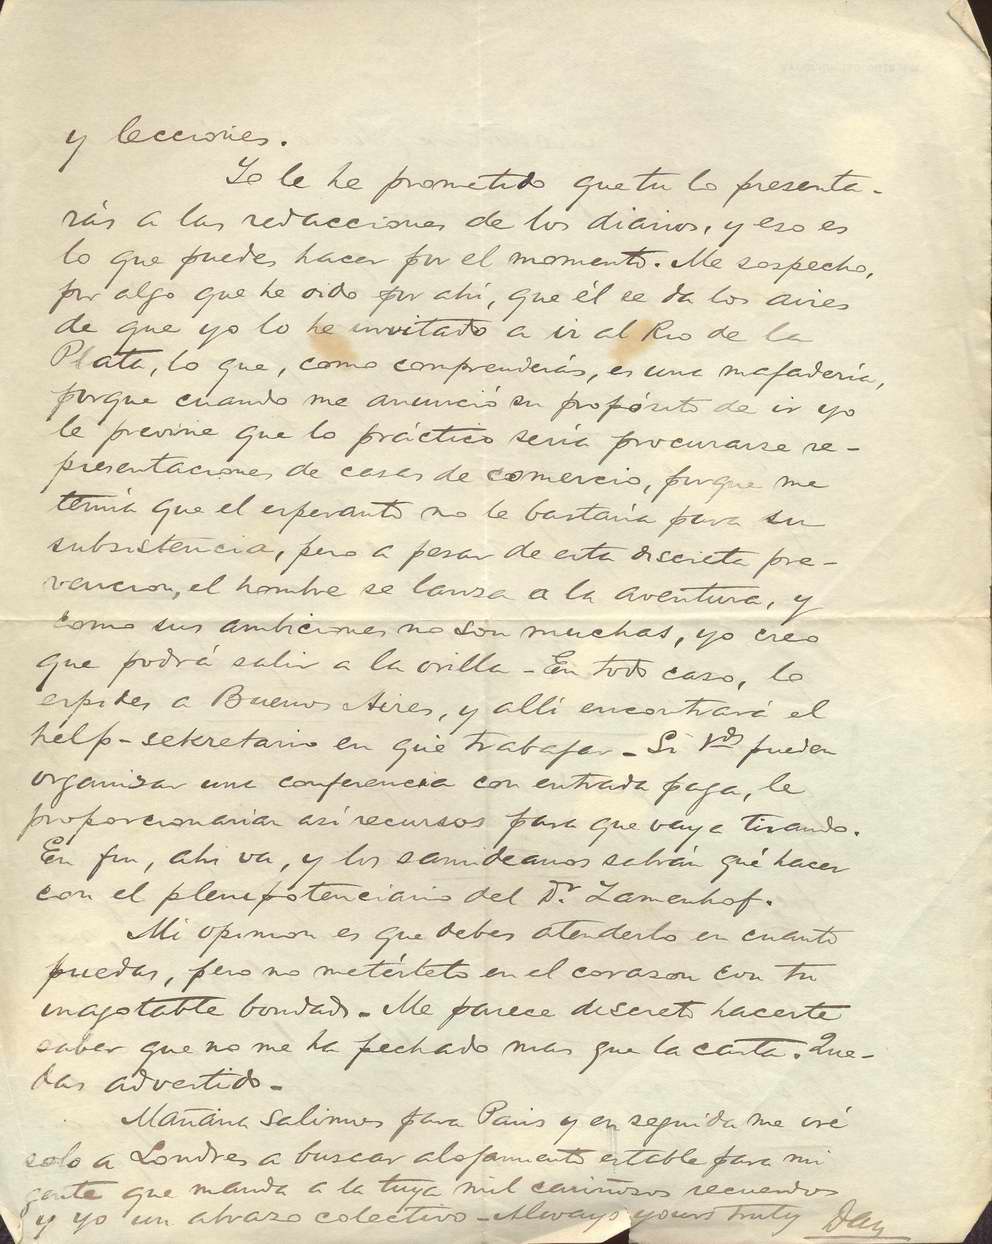 y lecciones.
Yo le he prometido que tu lo presenta-
rás a las redacciones de los diarios, y eso es
lo que puedes hacer por el momento. Me sospecho,
por algo que he oido por ahí, que él se da los aires
de que yo lo he invitado a ir al Rio de la
Plata, lo que, como comprenderás, es una majadería,
porque cuando me anunció su propósito de ir yo
le previne que lo práctico sería procurarse re-
presentaciones de casas de comercio, porque me
temía que el esperanto no le bastaría para su
subsistencia, pero a pesar de esta discreta pre-
vencion, el hombre se lanza a la aventura, y
como sus ambiciones no son muchas, yo creo
que podrá salir a la orilla - En todo caso, lo
espides a Buenos Aires, y allí encontrará el
help-sekretario en qué trabajar - Si Vds pueden
organizar una conferencia con entrada paga, le
proporcionarian así recursos para que vaya tirando.
En fin, ahi va, y los samideanos sabrán qué hacer
con el plenipotenciario del Dr. Zamenhof.
Mi opinion es que debes atenderlo en cuanto
puedas, pero no metértelo en el corazon con tu
inagotable bondad - Me parece discreto hacerte
saber que no me ha fechado mas que la carta. Que-
das advertido -
Mañana salimos para Paris y en seguida me iré
solo a Londres a buscar alojamiento estable para mi
gente que manda a la tuya mil cariñosos recuerdos
y yo un abrazo colectivo - Always yours truly Day